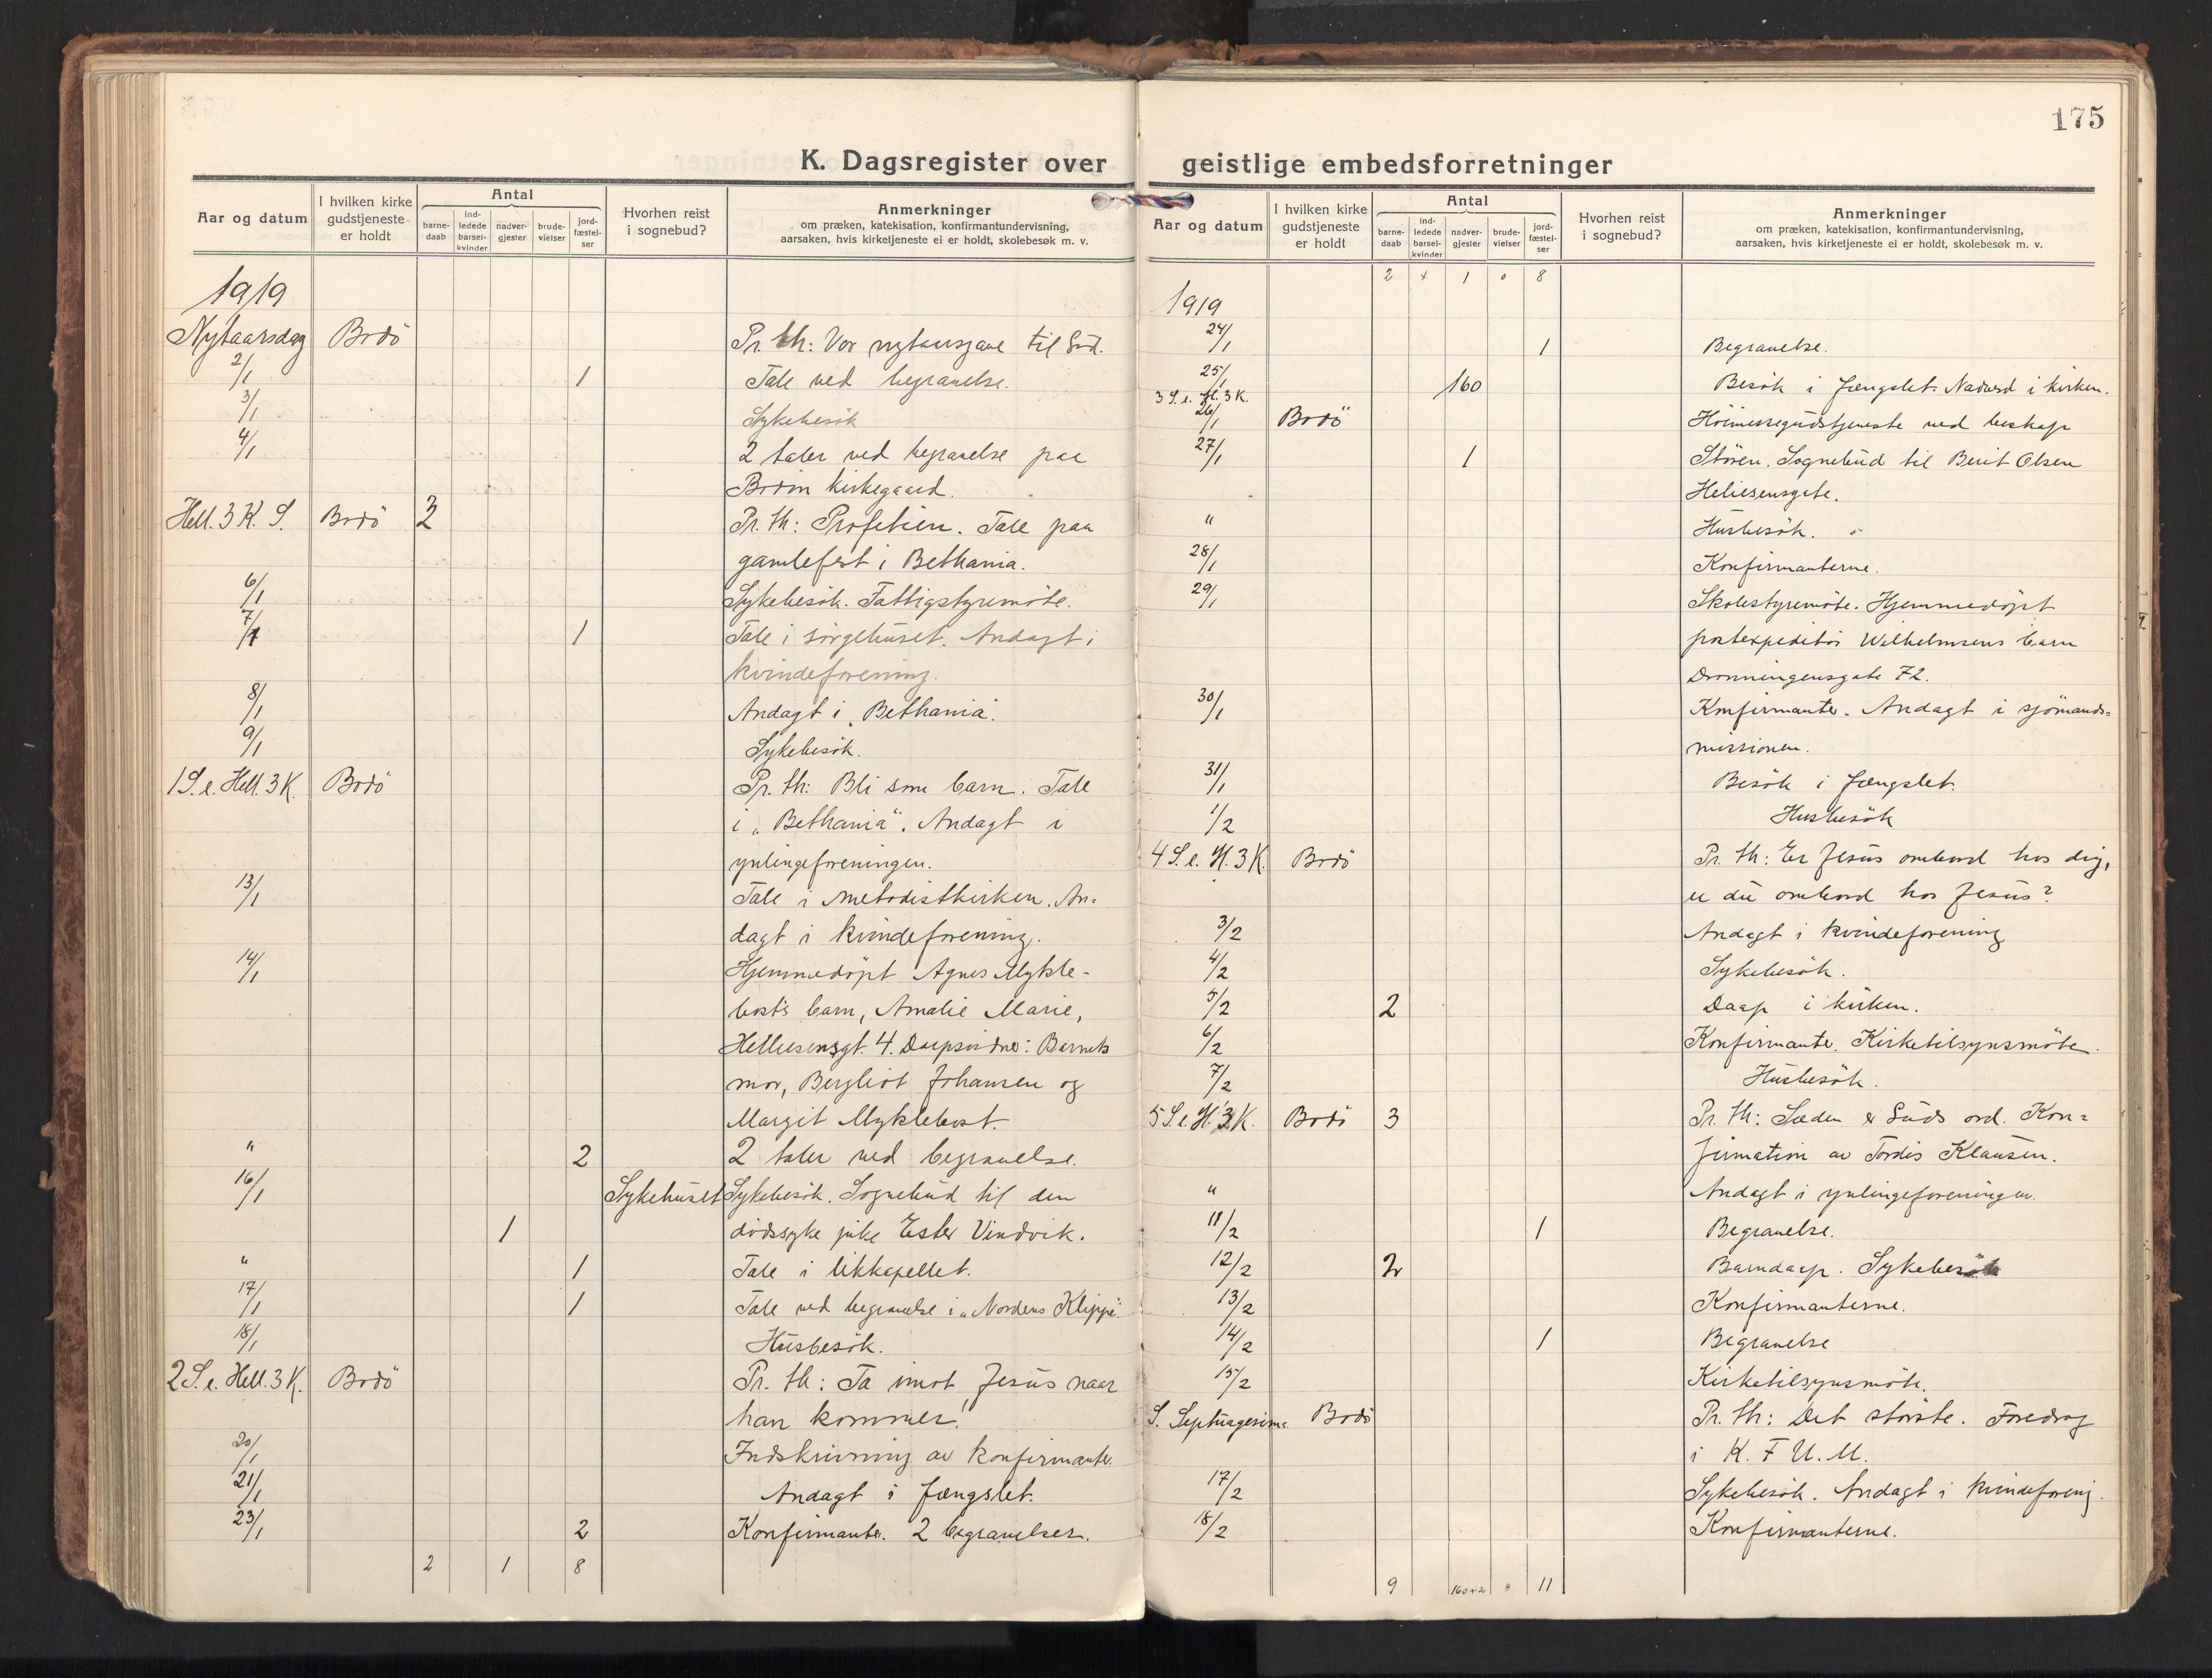 175
K. Dagsregister over geistlige embedsforretninger
Aar og datum
I hvilken kirke gudstjeneste er holdt
Antal
barne-daab
ind-ledede barsel-kvinder
nadver-gjester
brude-vielser
jord-fæstel-ser
Hvorhen reist i sognebud?
Anmerkninger
om præken, katekisation, konfirmantundervisning,
aarsaken, hvis kirketjeneste ei er holdt, skolebesøk m. v.
1919
Nytaarsdag Bodö Pr. th: Vor nytaarsgave til Gud.
2/1 1 Tale ved begravelse.
3/1 Sykebesök
4/1 2 taler ved begravelse paa
Bodin kirkegaard.
Hell. 3 K. S. Bodö 2 Pr. th: Profetien. Tale paa
gamlefest i Bethania.
6/1 Sykebesök. Fattigstyremöte.
7/1 1 Tale i sörgehuset. Andagt i
kvindeforening.
8/1 Andagt i „Bethania".
9/1 Sykebesök.
1 S. e. Hell. 3 K. Bodö Pr. th: Bli som barn. Tale
i „Bethania". Andagt i
ynlingeforeningen.
13/1 Tale i metodistkirken. An-
dagt i kvindeforening.
14/1 Hjemmedöpt Agnes Mykle-
bost's barn, Amalie Marie,
Helliesensgt. 4. Daapsvidner: Barnets
mor, Bergliot Johansen og
Margit Myklebost.
" 2 2 taler ved begravelse.
16/1 Sykehuset Sykebesök. Sognebud til den
1 dödssyke pike Ester Vindvik.
" 1 Tale i likkapellet.
17/1 1 Tale ved begravelse i „Nordens Klippe".
18/1 Husbesök.
2 S. e. Hell. 3 K. Bodö Pr. th: Ta imot Jesus naar
han kommer!
20/1 Indskrivning av konfirmanter.
21/1 Andagt i fængslet.
23/1 2 Konfirmanter. 2 begravelser.
2 1 8
Aar og datum
I hvilken kirke gudstjeneste er holdt
Antal
barne-daab
ind-ledede barsel-kvinder
nadver-gjester
brude-vielser
jord-fæstel-ser
Hvorhen reist i sognebud?
Anmerkninger
om præken, katekisation, konfirmantundervisning,
aarsaken, hvis kirketjeneste ei er holdt, skolebesøk m. v.
2 + 1 0 8
1919
24/1 1 Begravelse.
25/1 160 Besök i fængslet. Nadverd i kirken.
3 S. e. H. 3 K.
26/1 Bodö Höimessegudstjeneste ved biskop
27/1 1 Stören. Sognebud til Berit Olsen
Heliesensgate.
" Husbesök.
28/1 Konfirmanterne.
29/1 Skolestyremöte. Hjemmedöpt
postexpeditör Wilhelmsens barn
Dronningensgate 72.
30/1 Konfirmanter. Andagt i sjömands-
missionen.
31/1 Besök i fængslet.
1/2 Husbesök
4 S. e. H. 3 K. Bodö Pr. th: Er Jesus ombord hos dig,
er du ombord hos Jesus?
3/2 Andagt i kvindeforening
4/2 Sykebesök.
5/2 2 Daap i kirken.
6/2 Konfirmanter. Kirketilsynsmöte.
7/2 Husbesök.
5 S. e. H. 3 K. Bodö 3 Pr. th: Sæden er Guds ord. Kon-
firmation av Tordis Klausen.
" Andagt i ynlingeforeningen.
11/2 1 Begravelse.
12/2 2 Barndaap. Sykebesök
13/2 Konfirmanterne.
14/2 1 Begravelse
15/2 Kirketilsynsmöte.
S. Septuagesima Bodö Pr. th: Det störste. Foredrag
i K. F U. M.
17/2 Sykebesök. Andagt i kvindeforening.
18/2 Konfirmanterne.
9 160+2 0 11